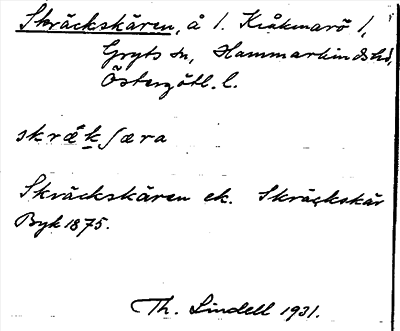 Skräckskären, å l. Kråkmarö 1,
Gryts sn, Hammarkinds hd,
Östergötl. l.
skrǽk ʃæra
Skräckskären ek. Skräckskär
Byk 1875.
Th. Lindell 1931.